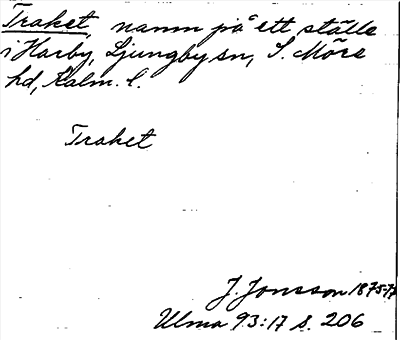 Traket, namn på ett ställe
i Harby, Ljungby sn, S. Möre
hd, Kalm. l.
Traket
J. Jonsson 1875-77
Ulma 93:17 s. 206